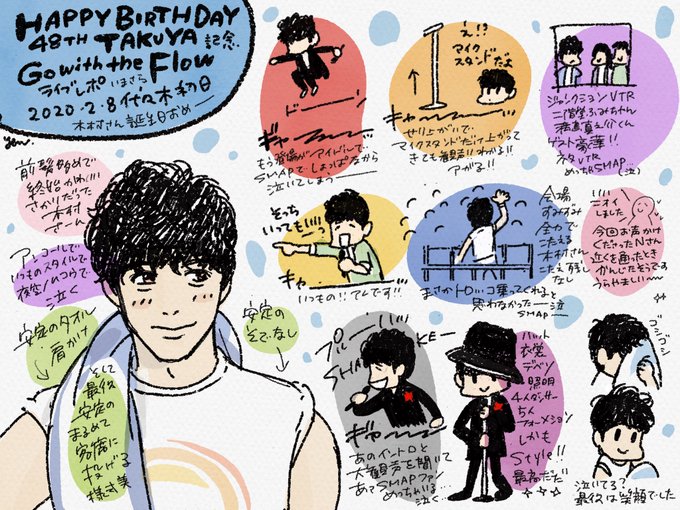 HAPPY BIRTHDAY
48TH TAKUYA 記念
Go with the Flow
ライブレポ いまさら
2020・2・8代々木初日
木村さん誕生日おめー
前髪短めで
終始かわいい
さかりだった
木村
さーん
アンコールで
いつものスタイルで
夜空ノムコウで
泣く
安定のタオル
肩かけ
安定の
そでなし
そして
最後
安定の
まるめて
客席に
投げる
様式美
ドーン
ギャー
もう登場がアイドルで
SMAPで しょっぱなから
泣いてしまう
え!?
マイク
スタンドだよ
ギャー
せり上がいで
マイクスタンドだけ上がって
きても歓声!!わかる!!
アガる!!
ジャンクションVTR
二階堂ふみちゃん
ゲスト豪華!!
ネタVTR
めっちゃSMAP…(泣)
そっち
いってもいい!?
ギャー
いつもの!!アレです!!
会場
すみずみ
全力で
こたえる
木村さん
こたえ残し
なし
まさかトロッコ乗ってくれると
思わなかったー泣
SMAP
ニオイ
しました
今回お声かけ
くださったNさん
近くを通ったとき
かんじたそうです
うらやましいー
SHAKE
ギャー
あのイントロと
大歓声を聞いて
あっSMAPファン
めっちゃいる…
泣く
ハット
衣装
デベソ
照明
4人ダンサー
ちん
フォーメション
しかも
Style!!
最高だだ
ゴシゴシ
泣いてる?
最後は笑顔でした